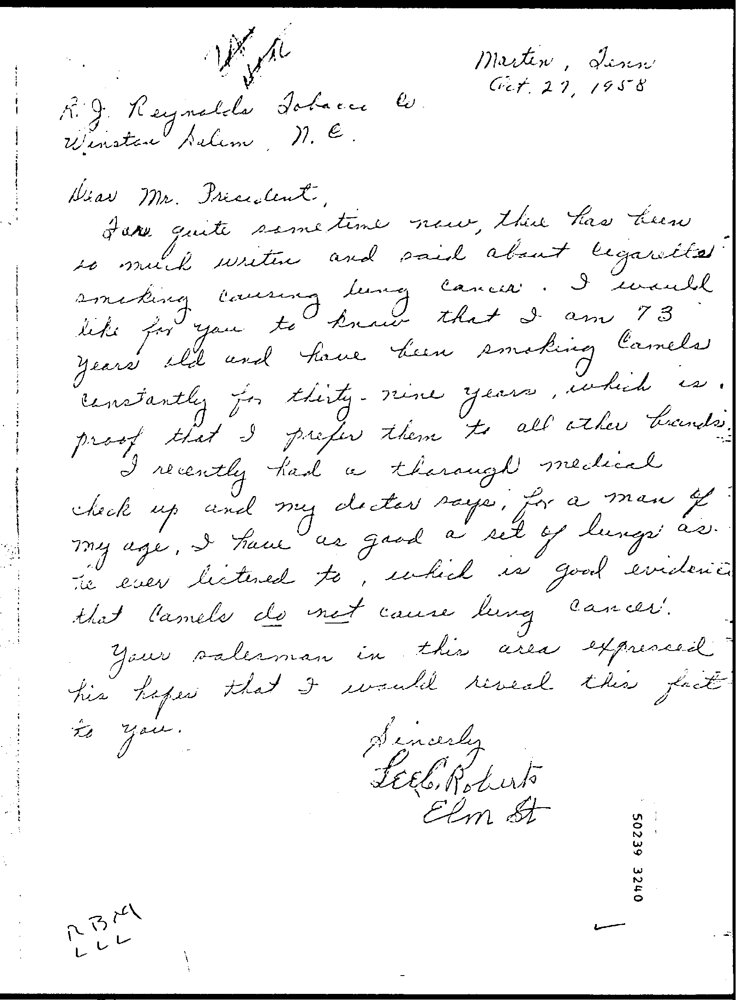 Martin, Tenn
Oct. 27, 1958
R. J. Reynolds Tobacco Co.
Winston Salem, N. C.
Dear Mr. President,
For quite sometime now, there has been
so much writen and said about cigarette
smoking causing lung cancer. I would
like for you to know that I am 73
years old and have been smoking Camels
constantly for thirty-nine years, which is
proof that I prefer them to all other brands.
I recently had a thorough medical
check up and my doctor says, for a man of
my age, I have as good a set of lungs as
he ever listened to, which is good evidence
that Camels do not cause lung cancer.
Your salesman in this area expressed
his hopes that I would reveal this fact
to you.
Sincerly
Lee C. Roberts
Elm St
50239 3240
RBM
LLL